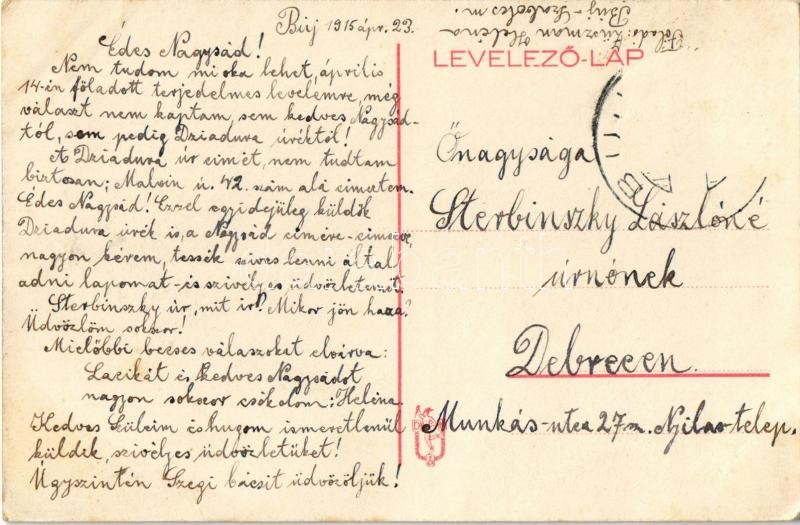 Búj 1915 ápr. 23.
Édes Nagysád!
Nem tudom mi oka lehet, április
14-én föladott terjedelmes levelemre, még
választ nem kaptam, sem kedves Nagysád-
tól, sem pedig Dziadura úréktól!
A Dziadura úr cimét, nem tudtam
biztosan; Malvin ú. 42. szám alá cimeztem.
Édes Nagysád! Ezzel egyidejüleg küldök
Dziadura úrék is, a Nagysád cimére-cimezve,
nagyon kérem, tessék szives lenni által
adni lapomat-és szivélyes üdvözletemet.
Sterbinszky úr, mit ir? Mikor jön haza?
Üdvözlöm sokszor!
Mielőbbi becses válaszokat elvárva:
Lacikát és kedves Nagysádot
nagyon sokszor csókolom: Heléna.
Kedves Szüleim és hugom ismeretlenül
küldik, szivélyes üdvözletüket!
Úgyszintén Szegi bácsit üdvözöljük!
Föladó: Heléna
Búj-Szabolcs m.
LEVELEZŐ-LAP
Őnagysága
Sterbinszky Lászlóné
úrnőnek
Debrecen.
Munkás-utca 27 sz. Nyilas-telep.